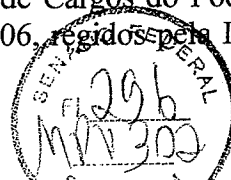 de Cargos do Po
06, regidos pela I
SENADO FEDERAL
296
MPV 302